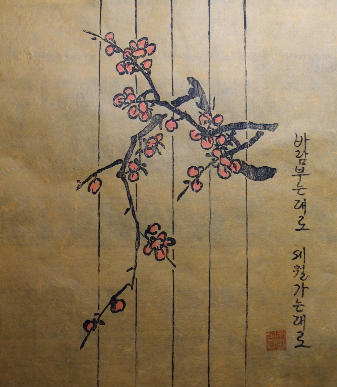 바람부는대로 세월가는대로